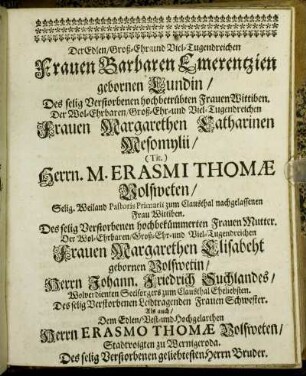 Der Edlen/ Groß-Ehr und Viel-Tugendreichen
Frauen Barbaren Emerentzien
gebornen Lundin/
Des selig Verstorbenen hochbetrübten Frauen Wittiben.
Der Wol-Ehrbaren/ Groß-Ehr-und Viel-Tugendreichen
Frauen Margarethen Catharinen
Mesomylii/
(Tit.)
Herrn. M. ERASMI THOMÆ
Volfweten/
Selig. Weiland Pastoris Primarii zum Clausthal nachgelassenen
Frau Wittiben.
Des selig Verstorbenen hochbekümmerten Frauen Mutter.
Der Wol-Ehrbaren/ Groß-Ehr-und Viel-Tugendreichen
Frauen Margarethen Elisabeht
gebornen Volfwetin/
Herrn Johann. Friedrich Suchlandes/
Wolverdienten Seelsorgers zum Clausthal Eheliebsten.
Des selig Verstorbenen Leidtragenden Frauen Schwester.
Als auch/
Dem Edlen/ Vest-und Hochgelarthen
Herrn ERASMO THOMÆ Volfweten/
Stadtvoigten zu Wernigeroda.
Des selig Verstorbenen geliebtesten Herrn Bruder.